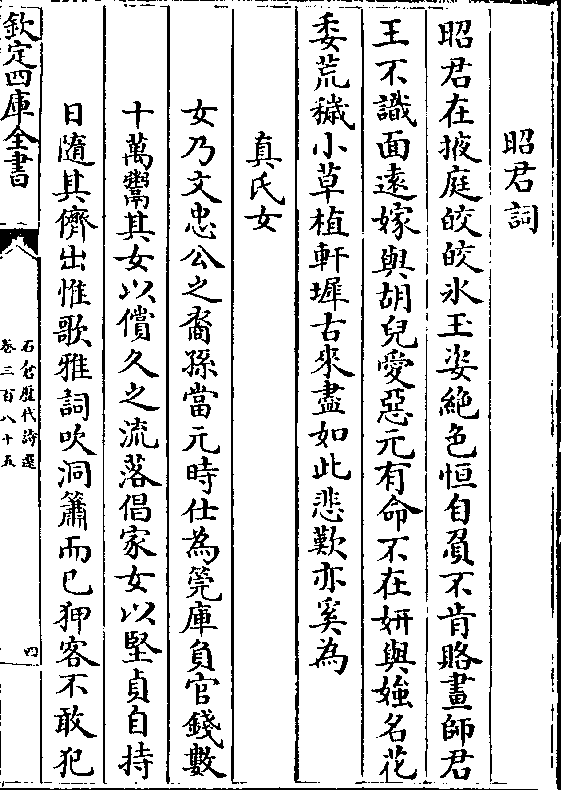 昭君詞
昭君在掖庭皎皎氷玉姿絶色恒自負不肯賂畫師君
王不識面逺嫁與胡兒愛惡元有命不在妍與媸名花
委荒穢小草植軒墀古來盡如此悲歎亦奚為
真氏女
女乃文忠公之裔孫當元時仕為筦庫負官錢數
十萬鬻其女以償久之流落倡家女以堅貞自持
日隨其儕出惟歌雅詞吹洞簫而已狎客不敢犯
欽定四庫全書
石倉歴代詩選
卷三百八十五
四